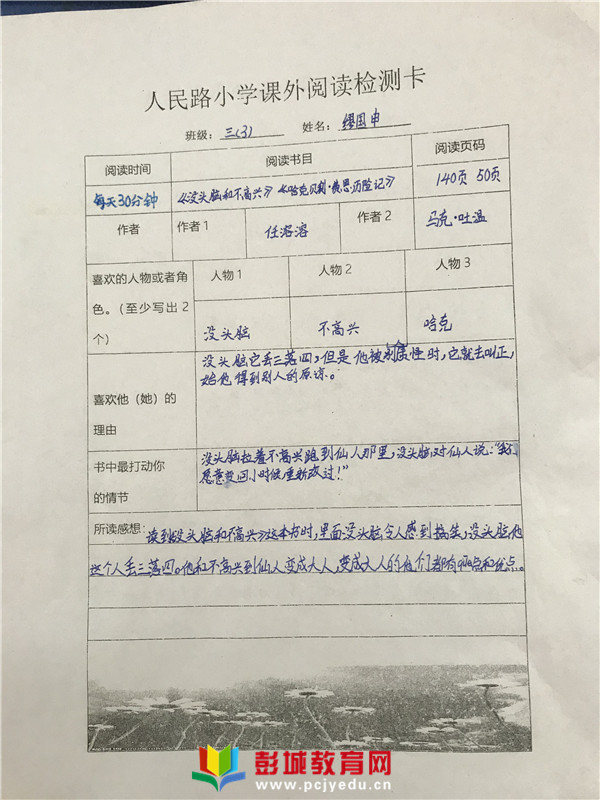 人民路小学课外阅读检测卡
班级：三(3) 姓名：缪国申
阅读时间 阅读书目 阅读页码
每天30分钟 《没头脑和不高兴》《哈克贝利·费恩历险记》 140页 50页
作者 作者1 任溶溶 作者2 马克·吐温
喜欢的人物或者角 人物1 人物2 人物3
色。（至少写出2
个） 没头脑 不高兴 哈克
没头脑它丢三落四，但是他被 时，它就去叫正，
喜欢他（她）的 始他得到别人的原谅。
理由
书中最打动你 没头脑拉着不高兴跑到仙人那里，没头脑对仙人说：“我们
的情节 愿意变回小时候重新改过！”
所读感想：读到《没头脑和不高兴》这本书时，里面没头脑令人感到搞笑，没头脑他
这个人丢三落四。他和不高兴到仙人变成大人，变成大人的他们都有 点和优点。
彭城教育网
www.pcjyedu.cn